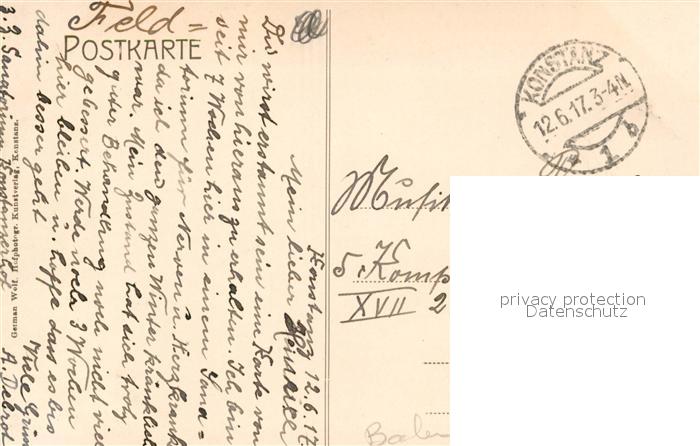 Feld=
POSTKARTE
Konstanz 12.6.17.
Mein lieber
Du wirst erstaunt sein eine Karte von
mir von hieraus zu erhalten. Ich bin
seit 7 Wochen hier in einem Sana=
torium für Nerven u. Herzkranke
da ich den ganzen Winter kränklich
war. Mein Zustand hat sich trotz
guter Behandlung noch nicht viel
gebessert. Werde noch 3 Wochen
hier bleiben u. hoffe dass es bis
dahin besser geht
Viele Grüs
z. Z. Sanatorium Konstanzerhof
German Wolf, Hofphotogr. Kunstverlag, Konstanz.
KONSTANZ
12.6.17. 3-4N.
* 1 b
Musik
5. Komp
XVII 2
privacy protection
Datenschutz
Baden